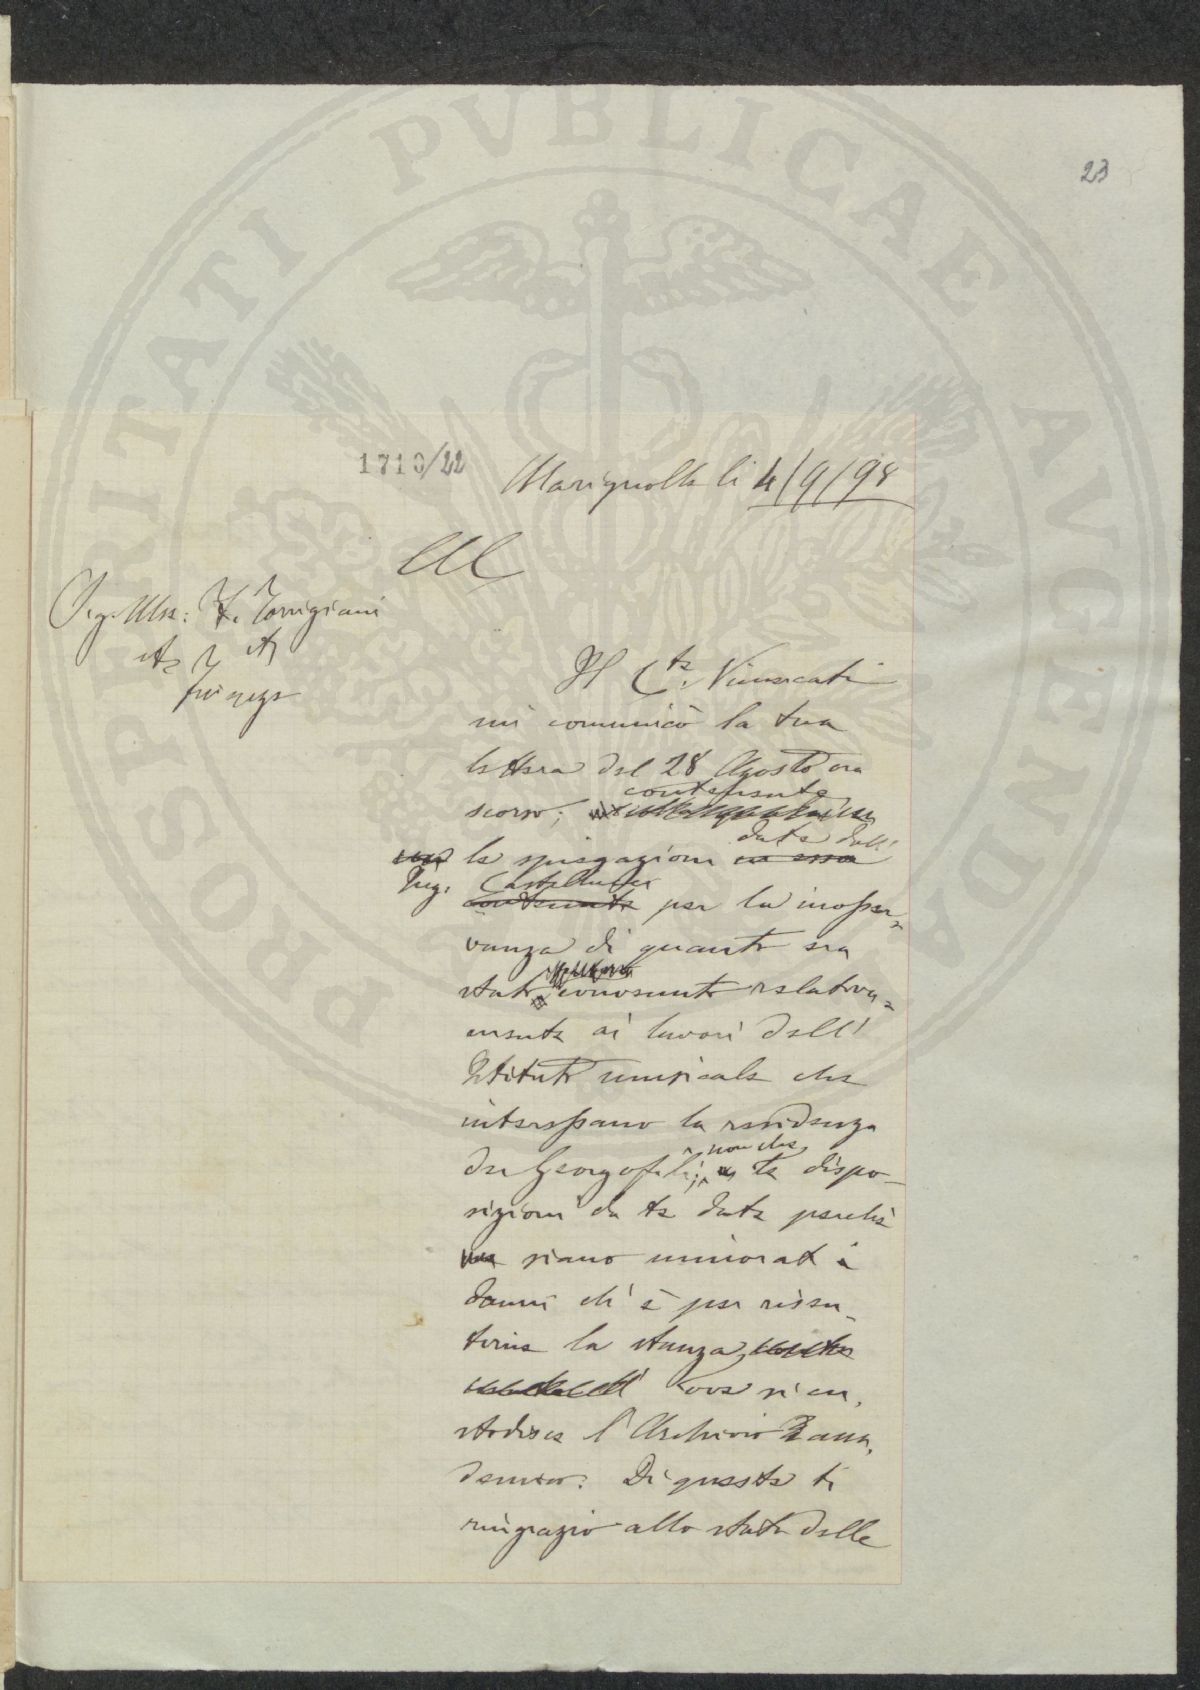 PROSPERITATI PVBLICAE AVGENDAE
23
1710/22
Marignolle li 4/9/98
Sig. Mse: F. Torrigiani
Firenze
Il Cte. Vimercati
mi comunicò la tua
lettera del 28 Agosto ora
contenente
scorso;
date dall'
le spiegazioni in essa
Ing. Castellucci
contenute per la inosser-
vanza di quanto era
stato convenuto relativa-
mente ai lavori dell'
Istituto musicale che
interessano la residenza
non che
dei Georgofili; le dispo-
sizioni da te date perchè
siano minorati i
danni ch'è per risen-
tirne la stanza
ove si cu-
stodisce l'Archivio Acca-
demico. Di queste ti
ringrazio allo stato delle